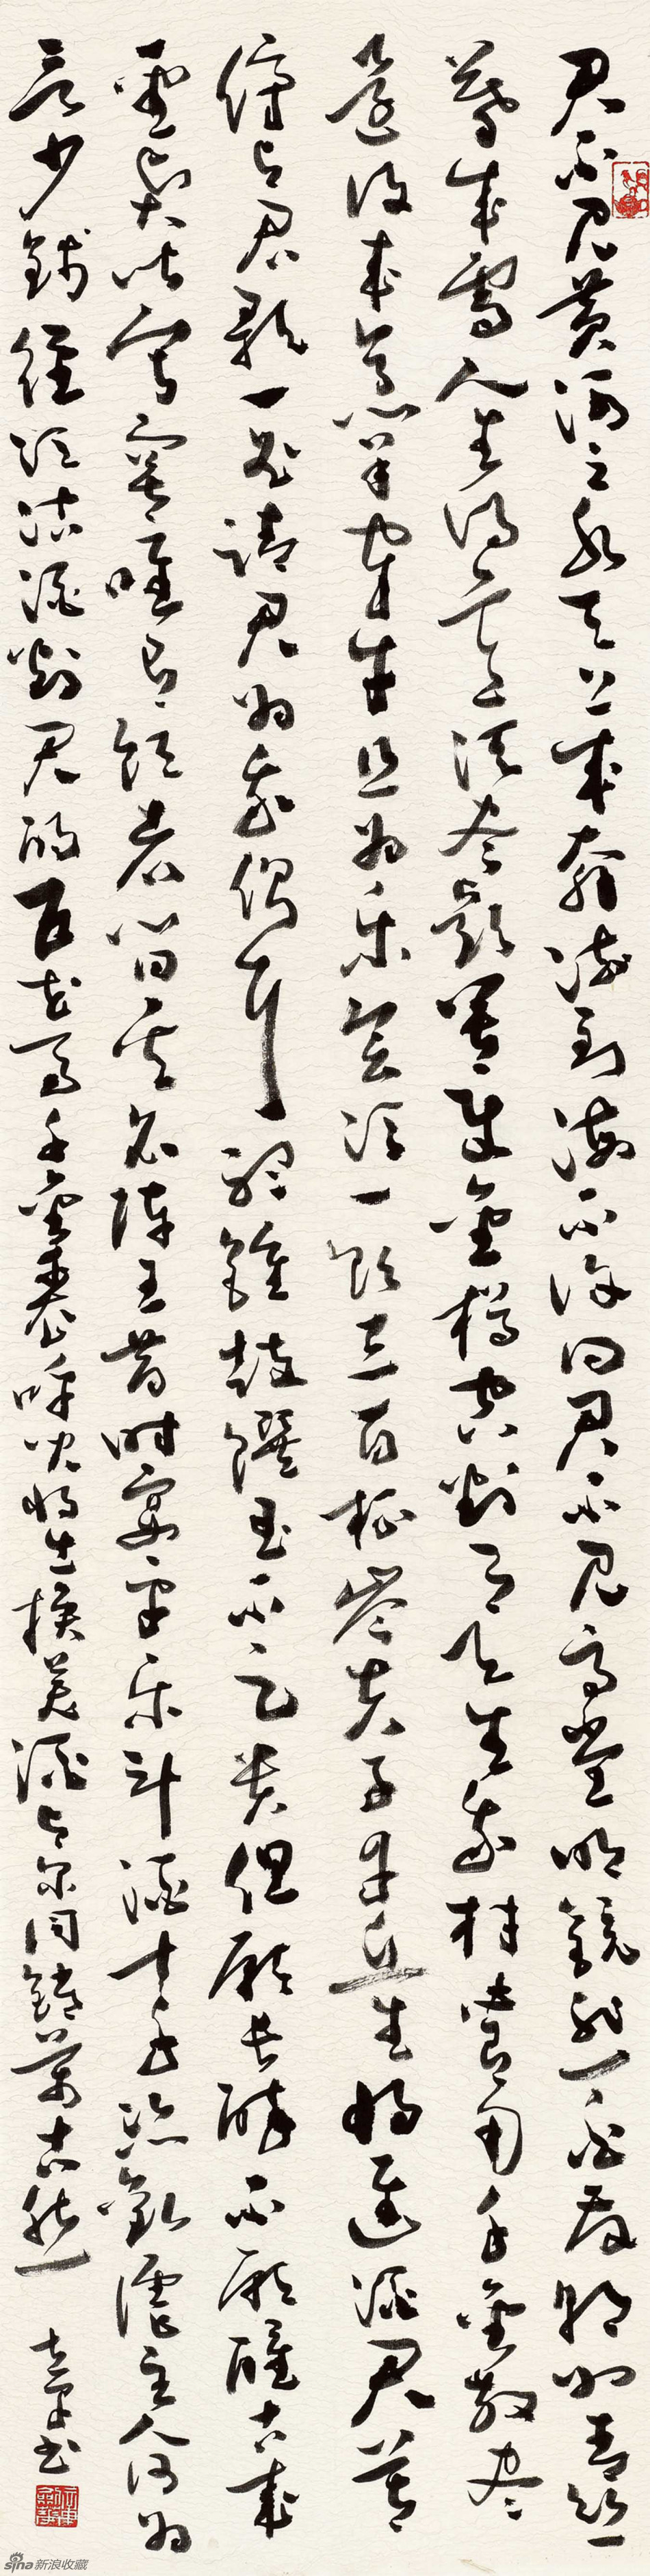 君不見黃河之水天上來奔流到海不復回君不見高堂明鏡悲白髮朝如青絲
暮成雪人生得意須盡歡莫使金樽空對月天生我材必有用千金散盡
還復來烹羊宰牛且為樂會須一飲三百杯岑夫子丹丘生將進酒君莫
停與君歌一曲請君為我傾耳聽鐘鼓饌玉不足貴但願長醉不願醒古來
聖賢皆寂寞唯有飲者留其名陳王昔時宴平樂斗酒十千恣歡謔主人何為
言少錢徑須沽酒對君酌五花馬千金裘呼兒將出換美酒與爾同銷萬古愁
書
sina新浪收藏